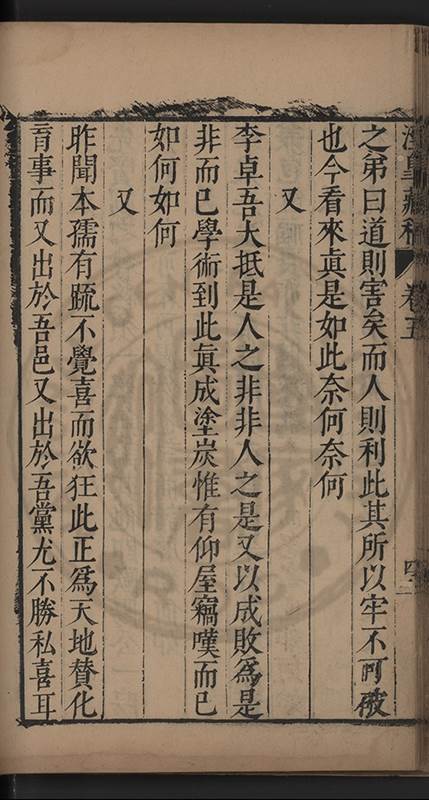 涇臯藏稿 卷五 四二
之弟曰道則害矣而人則利此其所以牢不可破
也今看來眞是如此奈何奈何
又
李卓吾大抵是人之非非人之是又以成敗爲是
非而已學術到此眞成塗炭惟有仰屋竊嘆而已
如何如何
又
昨聞本孺有䟽不覺喜而欲狂此正爲天地賛化
育事而又出於吾邑又出於吾黨尤不勝私喜耳